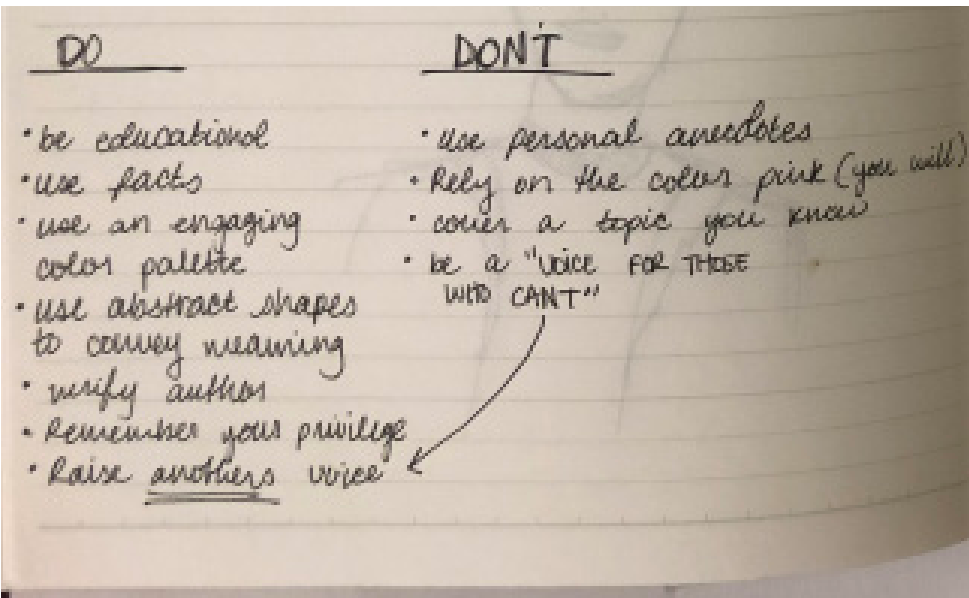 DO
• be educational
• use facts
• use an engaging
color palette
• use abstract shapes
to convey meaning
• verify author
• Remember your privilege
• Raise anothers voice
DON'T
• Use personal anecdotes
• Rely on the color pink (you will)
• cover a topic you know
• be a "VOICE FOR THOSE
WHO CANT"